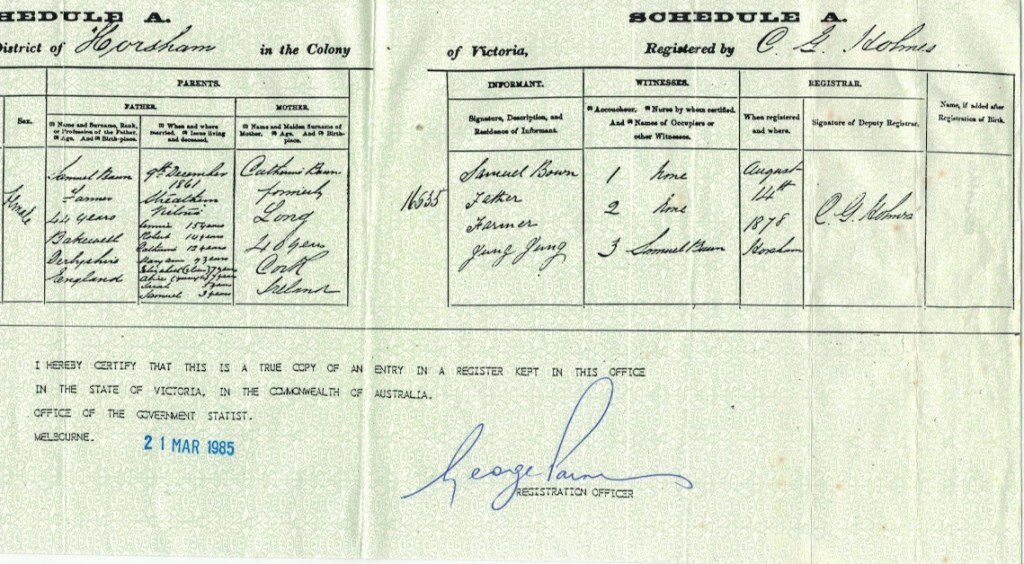 HEDULE A.
SCHEDULE A.
District of Horsham in the Colony
of Victoria, Registered by C. G. Holmes
PARENTS.
INFORMANT.
WITNESSES.
REGISTRAR.
Sex.
FATHER.
MOTHER.
(1) Name and Surname, Rank, or Profession of the Father. (2) Age. And (3) Birth-place.
(1) When and where Married. (2) Issue living and deceased.
(1) Name and Maiden Surname of Mother. (2) Age. And (3) Birth-place.
Signature, Description, and Residence of Informant.
(1) Accoucheur. (2) Nurse by whom certified. And (3) Names of Occupiers or other Witnesses.
When registered and where.
Signature of Deputy Registrar.
Name, if added after Registration of Birth.
Female
Samuel Bown
Farmer
44 years
Bakewell
Derbyshire
England
9th December
1861
15 years
Robert 14 years
Catherine 12 years
Mary Ann 9 years
Sarah
Samuel 3 years
Catherine Bown
formerly
Long
40 years
Cork
Ireland
16535
Samuel Bown
Father
Farmer
Jung Jung
1 None
2 None
3 Samuel Bown
August
14th
1878
Horsham
C. G. Holmes
I HEREBY CERTIFY THAT THIS IS A TRUE COPY OF AN ENTRY IN A REGISTER KEPT IN THIS OFFICE
IN THE STATE OF VICTORIA, IN THE COMMONWEALTH OF AUSTRALIA.
OFFICE OF THE GOVERNMENT STATIST.
MELBOURNE. 21 MAR 1985
REGISTRATION OFFICER